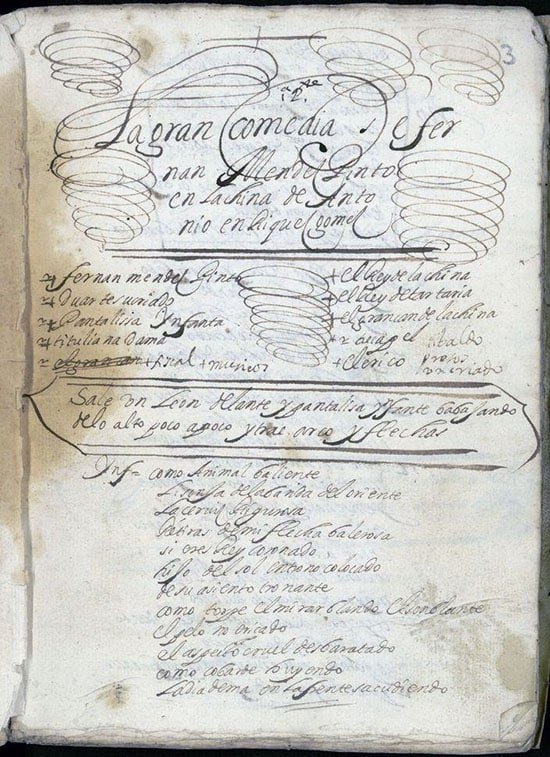 3
1ª pte
La gran comedia de fer
nan Mendes Pinto
en la china de Anto
nio enrriques gomes
fernan mendes Pinto
Duarte criado
Pantalisa Infanta
titulia na Dama
fisal + musicos
+ el Rey de la china
+ el Rey de tartaria
+ el gran can de la china
+ clerico
criado
Sale un Leon delante y pantalisa ynfante baba sando
de lo alto poco apoco y trae arco y flechas
Ynf= como Animal baliente
de la banda del oriente
La ceruis
Retiras de mi flecha balerosa
si eres Rey coronado
hijo del sol entono colocado
de su asiento tronante
como torpe el mirar blando el senblante
el pelo no ericado
el aspeto cruel desbaratado
como cobarde huyendo
La diadema en la frente sacudiendo